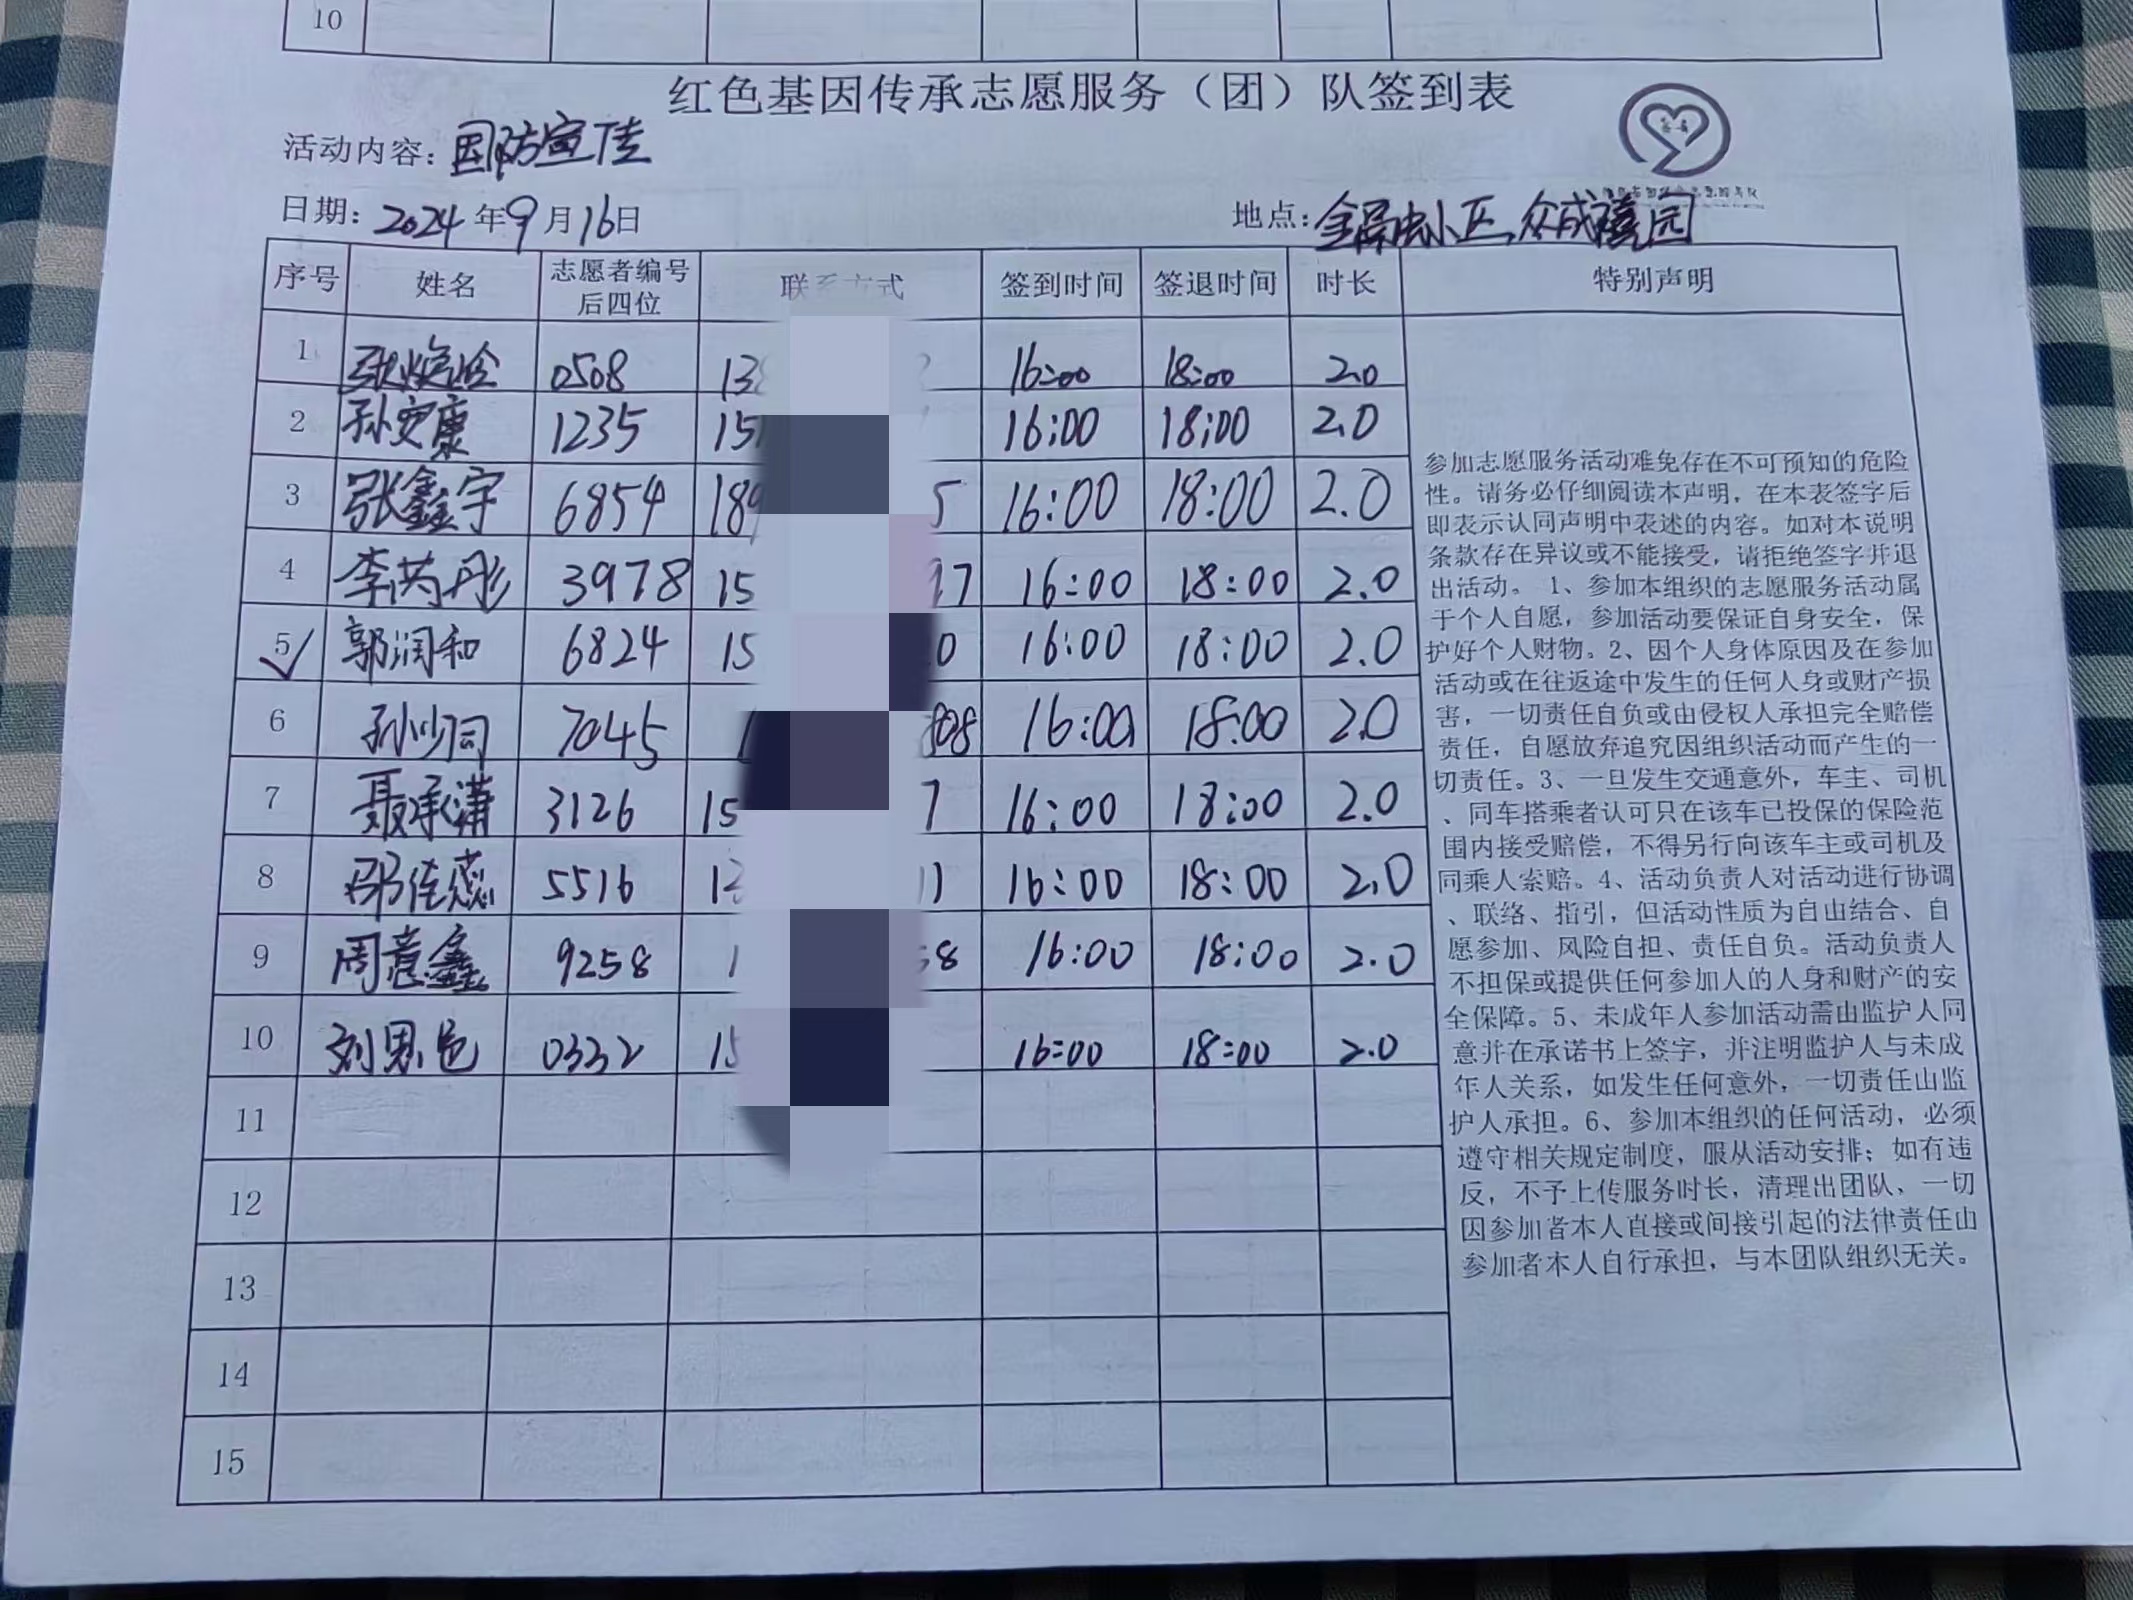 10
红色基因传承志愿服务（团）队签到表
活动内容：国防宣传
日期：2024年9月16日 地点：小区，众成禧园
序号 姓名 志愿者编号后四位 联系方式 签到时间 签退时间 时长 特别声明
1 0508 13 16:00 18:00 2.0
2 孙安康 1235 15 16:00 18:00 2.0
3 张鑫宇 6854 189 5 16:00 18:00 2.0
4 李芮彤 3978 15 17 16:00 18:00 2.0
5 郭润和 6824 15 0 16:00 18:00 2.0
6 7045 1 808 16:00 18:00 2.0
7 聂承潇 3126 15 7 16:00 18:00 2.0
8 邵佳蕊 5516 13 11 16:00 18:00 2.0
9 周意鑫 9258 1 58 16:00 18:00 2.0
10 刘思包 0332 15 16:00 18:00 2.0
11
12
13
14
15
参加志愿服务活动难免存在不可预知的危险
性。请务必仔细阅读本声明，在本表签字后
即表示认同声明中表述的内容。如对本说明
条款存在异议或不能接受，请拒绝签字并退
出活动。 1、参加本组织的志愿服务活动属
于个人自愿，参加活动要保证自身安全，保
护好个人财物。2、因个人身体原因及在参加
活动或在往返途中发生的任何人身或财产损
害，一切责任自负或由侵权人承担完全赔偿
责任，自愿放弃追究因组织活动而产生的一
切责任。3、一旦发生交通意外，车主、司机
、同车搭乘者认可只在该车已投保的保险范
围内接受赔偿，不得另行向该车主或司机及
同乘人索赔。4、活动负责人对活动进行协调
、联络、指引，但活动性质为自由结合、自
愿参加、风险自担、责任自负。活动负责人
不担保或提供任何参加人的人身和财产的安
全保障。5、未成年人参加活动需由监护人同
意并在承诺书上签字，并注明监护人与未成
年人关系，如发生任何意外，一切责任由监
护人承担。6、参加本组织的任何活动，必须
遵守相关规定制度，服从活动安排；如有违
反，不予上传服务时长，清理出团队，一切
因参加者本人直接或间接引起的法律责任由
参加者本人自行承担，与本团队组织无关。